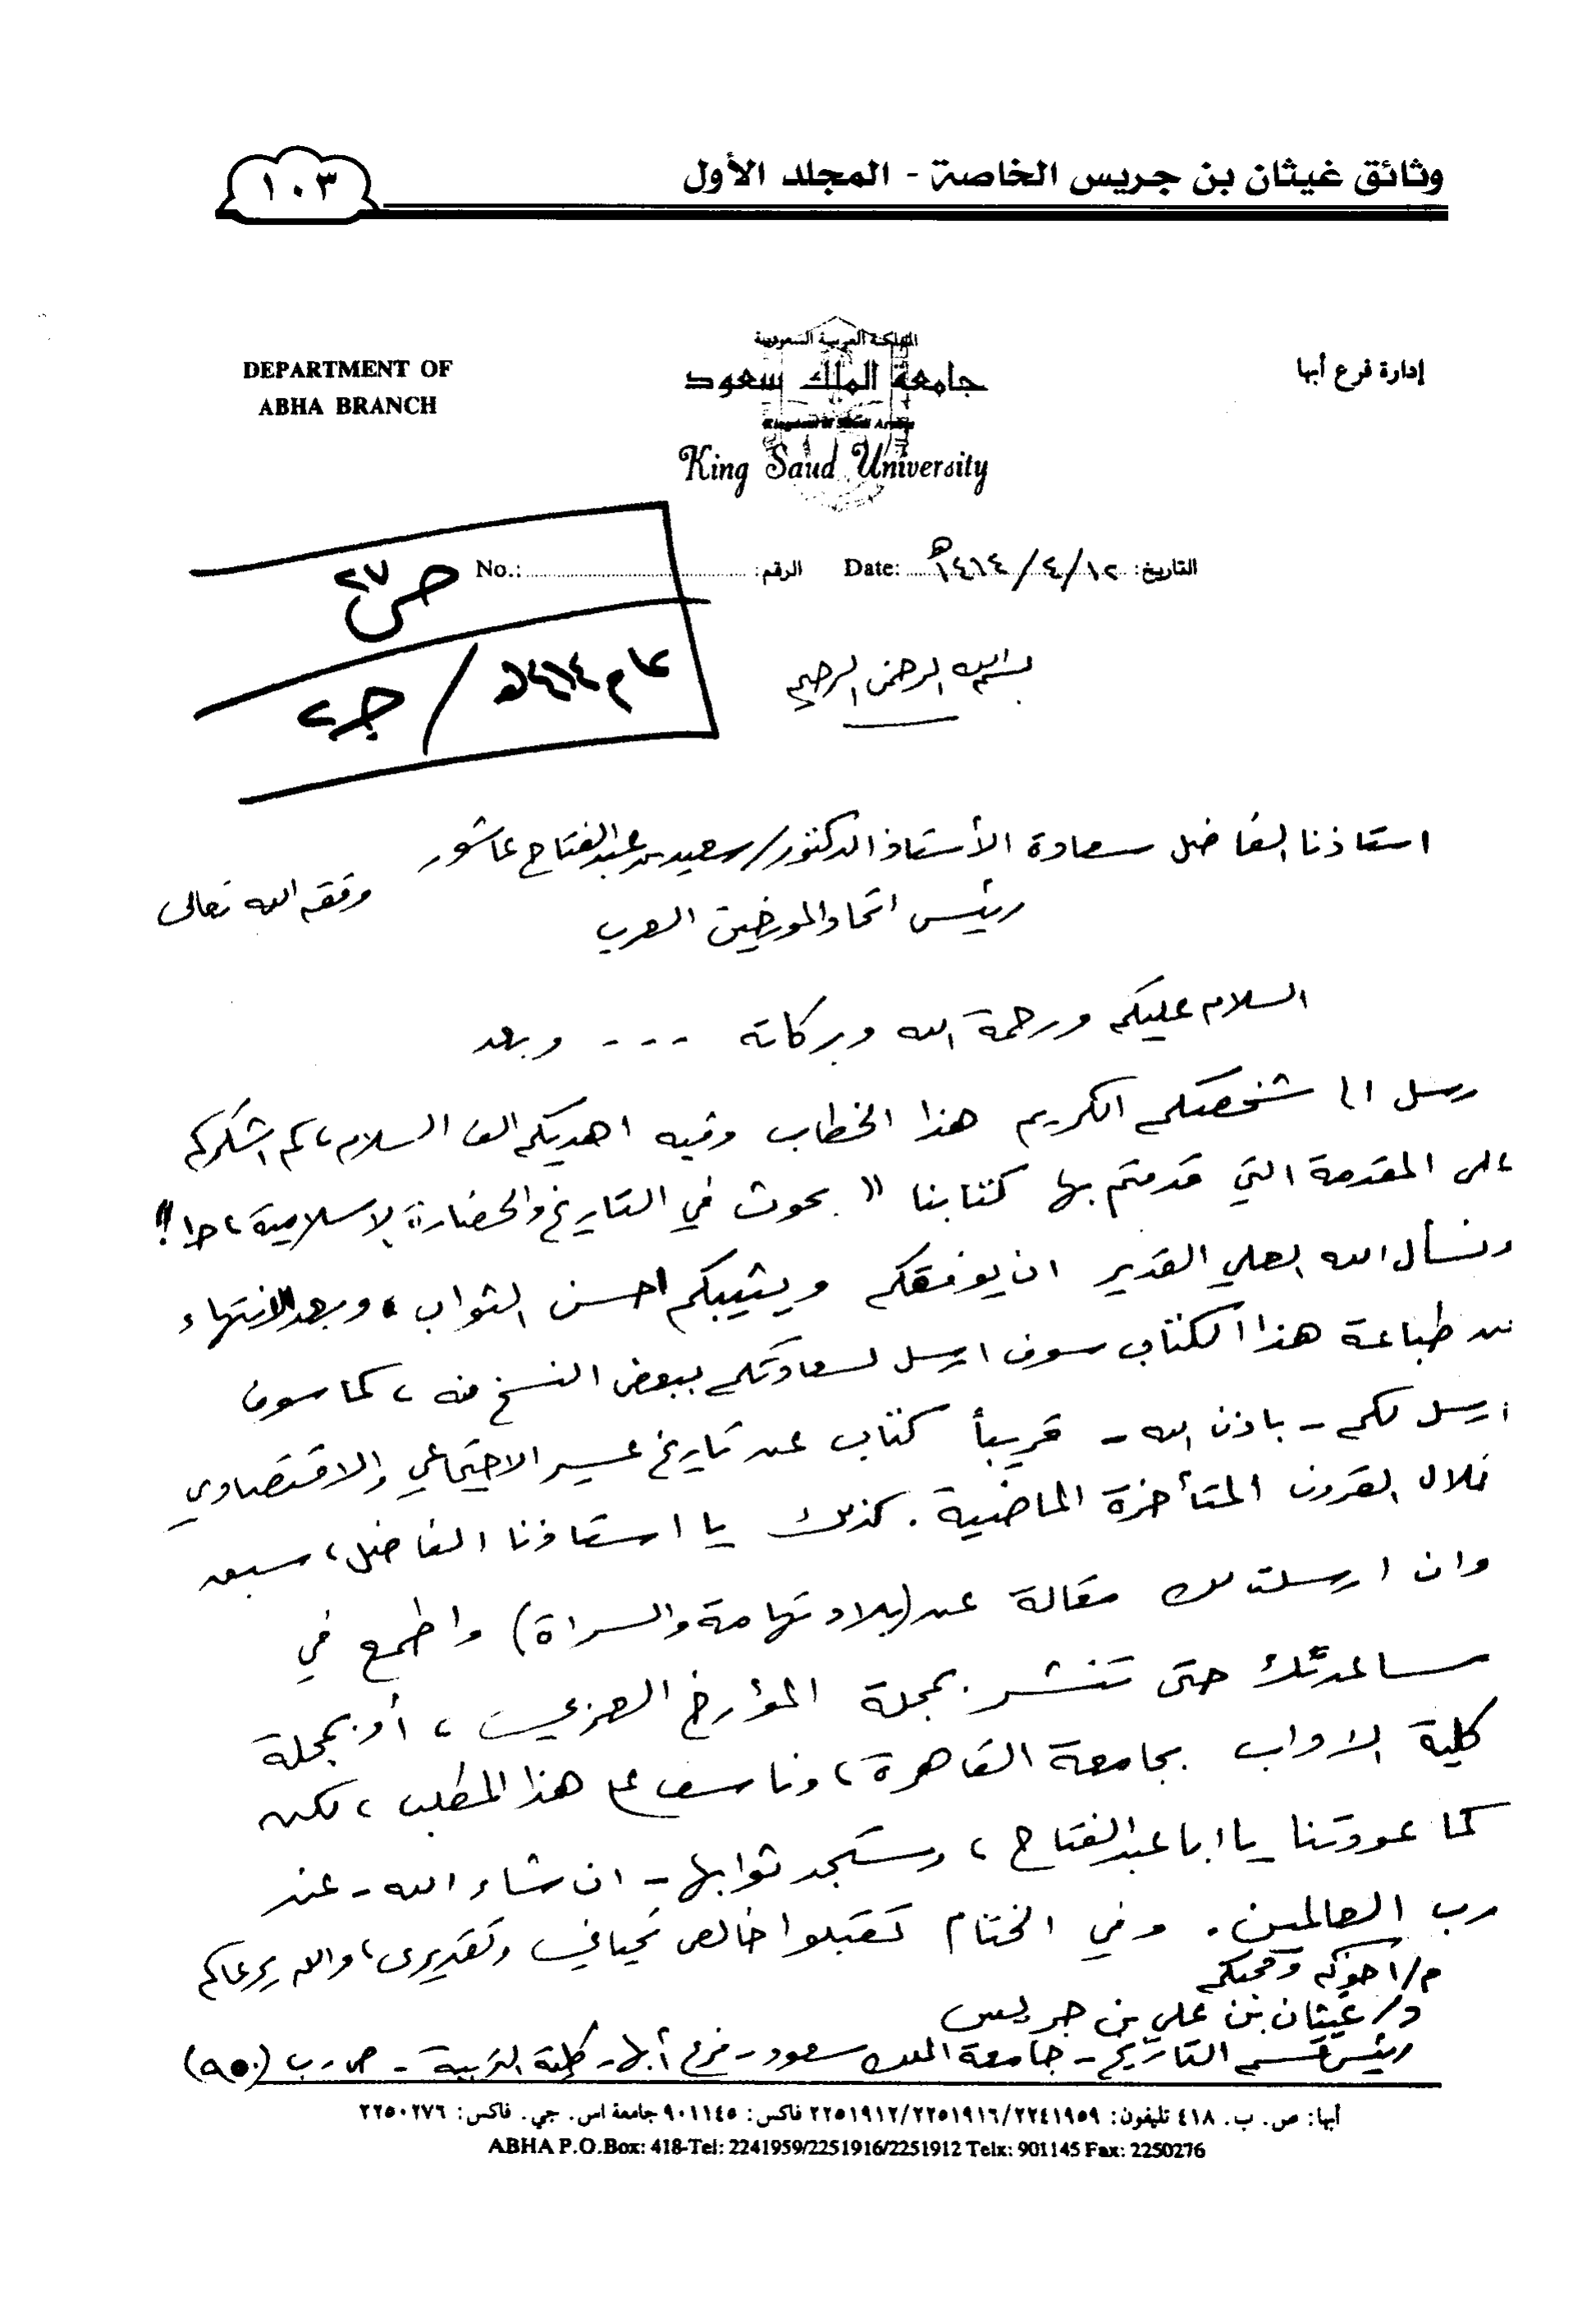 وثائق غيثان بن جريس الخاصة - المجلد الأول
١٠٣
إدارة فرع أبها
المملكة العربية السعودية
جامعة الملك سعود
Kingdom of Saudi Arabia
King Saud University
DEPARTMENT OF
ABHA BRANCH
التاريخ: ١٤١٤/٤/١٢هـ Date: الرقم: No.:
ص ٢٧
عام ١٤١٤هـ / جـ ٢
بسم الله الرحمن الرحيم
استاذنا الفاضل سعادة الأستاذ الدكتور/ سعيد عبدالفتاح عاشور
رئيس اتحاد المؤرخين العرب وفقه الله تعالى
السلام عليكم ورحمة الله وبركاته - - - وبعد
رسل الى شخصكم الكريم هذا الخطاب وفيه اهديكم الف السلام، ثم اشكركم
على المقدمة التي قدمتم بها كتابنا "بحوث في التاريخ والحضارة الإسلامية، جـ١"
ونسأل الله العلي القدير ان يوفقكم ويثيبكم احسن الثواب، وبعد الانتهاء
من طباعة هذا الكتاب سوف ارسل لسعادتكم ببعض النسخ منه، كما سوف
ارسل لكم - باذن الله - قريباً كتاب عن تاريخ عسير الاجتماعي والاقتصادي
خلال القرون المتأخرة الماضية. كذلك يا استاذنا الفاضل، سبق
وان ارسلت لك مقالة عن (بلاد تهامة والسراة) واطمع في
مساعدتك حتى تنشر بمجلة المؤرخ العربي، أو بمجلة
كلية الاداب بجامعة القاهرة، وناسف على هذا المطلب، لكن
كما عودتنا يا ابا عبدالفتاح، وستجد ثوابها - ان شاء الله - عند
رب العالمين. وفي الختام تقبلوا خالص تحياتي وتقديري، والله يرعاكم
م/ أخوكم ومحبكم
د/ غيثان بن علي بن جريس
رئيس قسم التاريخ - جامعة الملك سعود - فرع أبها - كلية التربية - ص.ب (٩٥٠)
أبها: ص. ب. ٤١٨ تليفون: ٢٢٥١٩١٢/٢٢٥١٩١٦/٢٢٤١٩٥٩ فاكس: ٩٠١١٤٥ جامعة اس. جي. فاكس: ٢٢٥٠٢٧٦
ABHA P.O.Box: 418-Tel: 2241959/2251916/2251912 Telx: 901145 Fax: 2250276